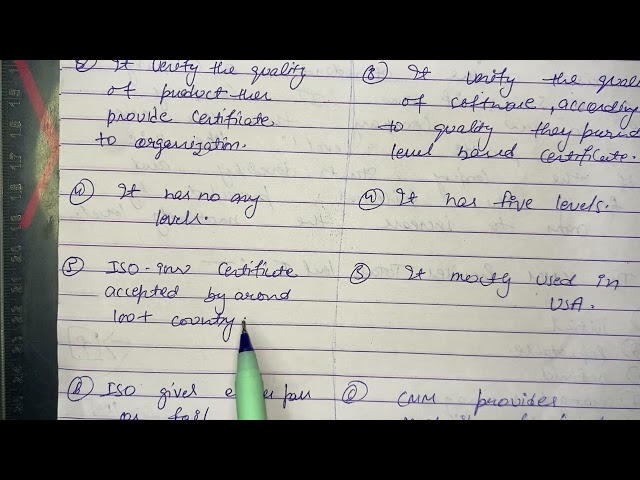 It verify the quality
of product then
provide certificate
to organization.
④ It has no any
levels.
⑤ ISO-
certificate
accepted by arond
100+ country.
⑥ ISO gives pass
or fail
③ It verify the quali
of software, according
to quality they
level based certificate.
④ It has five levels.
⑤ It mostly used in
USA.
⑥ CMM provides